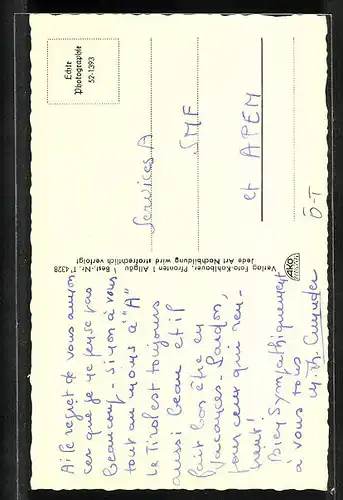 Echte
Photographie
52-1393
Verlag Foto-Kohlbauer, Pfronten / Allgäu · Best.-Nr. T 4328
Jede Art Nachbildung wird strafrechtlich verfolgt
AKO
Ai le regret de vous annon
cer que je ne pense pas
beaucoup - sinon à vous
tout au moins à "A"
Le Tirol est toujours
aussi beau et il
fait bon être en
vacances - Pardon,
pour ceux qui ren-
trent!
Bien sympathiquement
à vous tous
Services A
SMF
et APEM
Ö-T